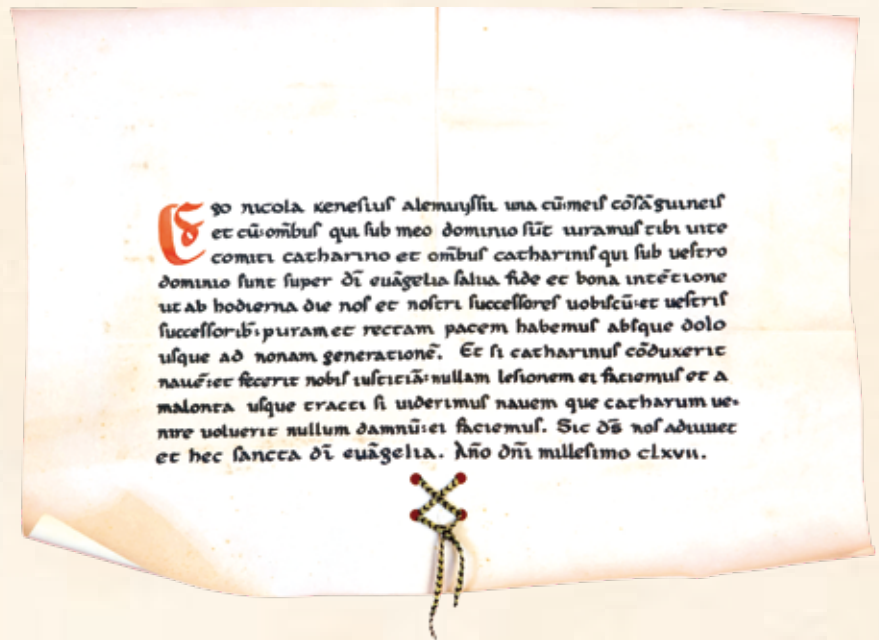 Ego nicola keneſiuſ alemuyſſii una cū:meiſ cōſāguineiſ
et cū:om̄buſ qui ſub meo dominio ſūt iuramuſ tibi uite
comiti catharino et om̄buſ catharinıſ qui ſub ueſtro
dominio ſunt ſuper dī euāgelia ſalua fide et bona intētione
ut ab hodierna die noſ et noſtri ſucceſſoreſ uobiſcū:et ueſtriſ
ſucceſſorib: puram et rectam pacem habemuſ abſque dolo
uſque ad nonam generationē. Et ſi catharinuſ cōduxerit
nauē:et fecerit nobiſ iuſtitiā:nullam leſionem ei faciemuſ et a
malonta uſque tracti ſi uiderimuſ nauem que catharum ue-
nire uoluerit nullum damnū:ei faciemuſ. Sic dſ̄ noſ adiuuet
et hec ſancta dī euāgelia. Año dn̄i milleſimo clxvii.